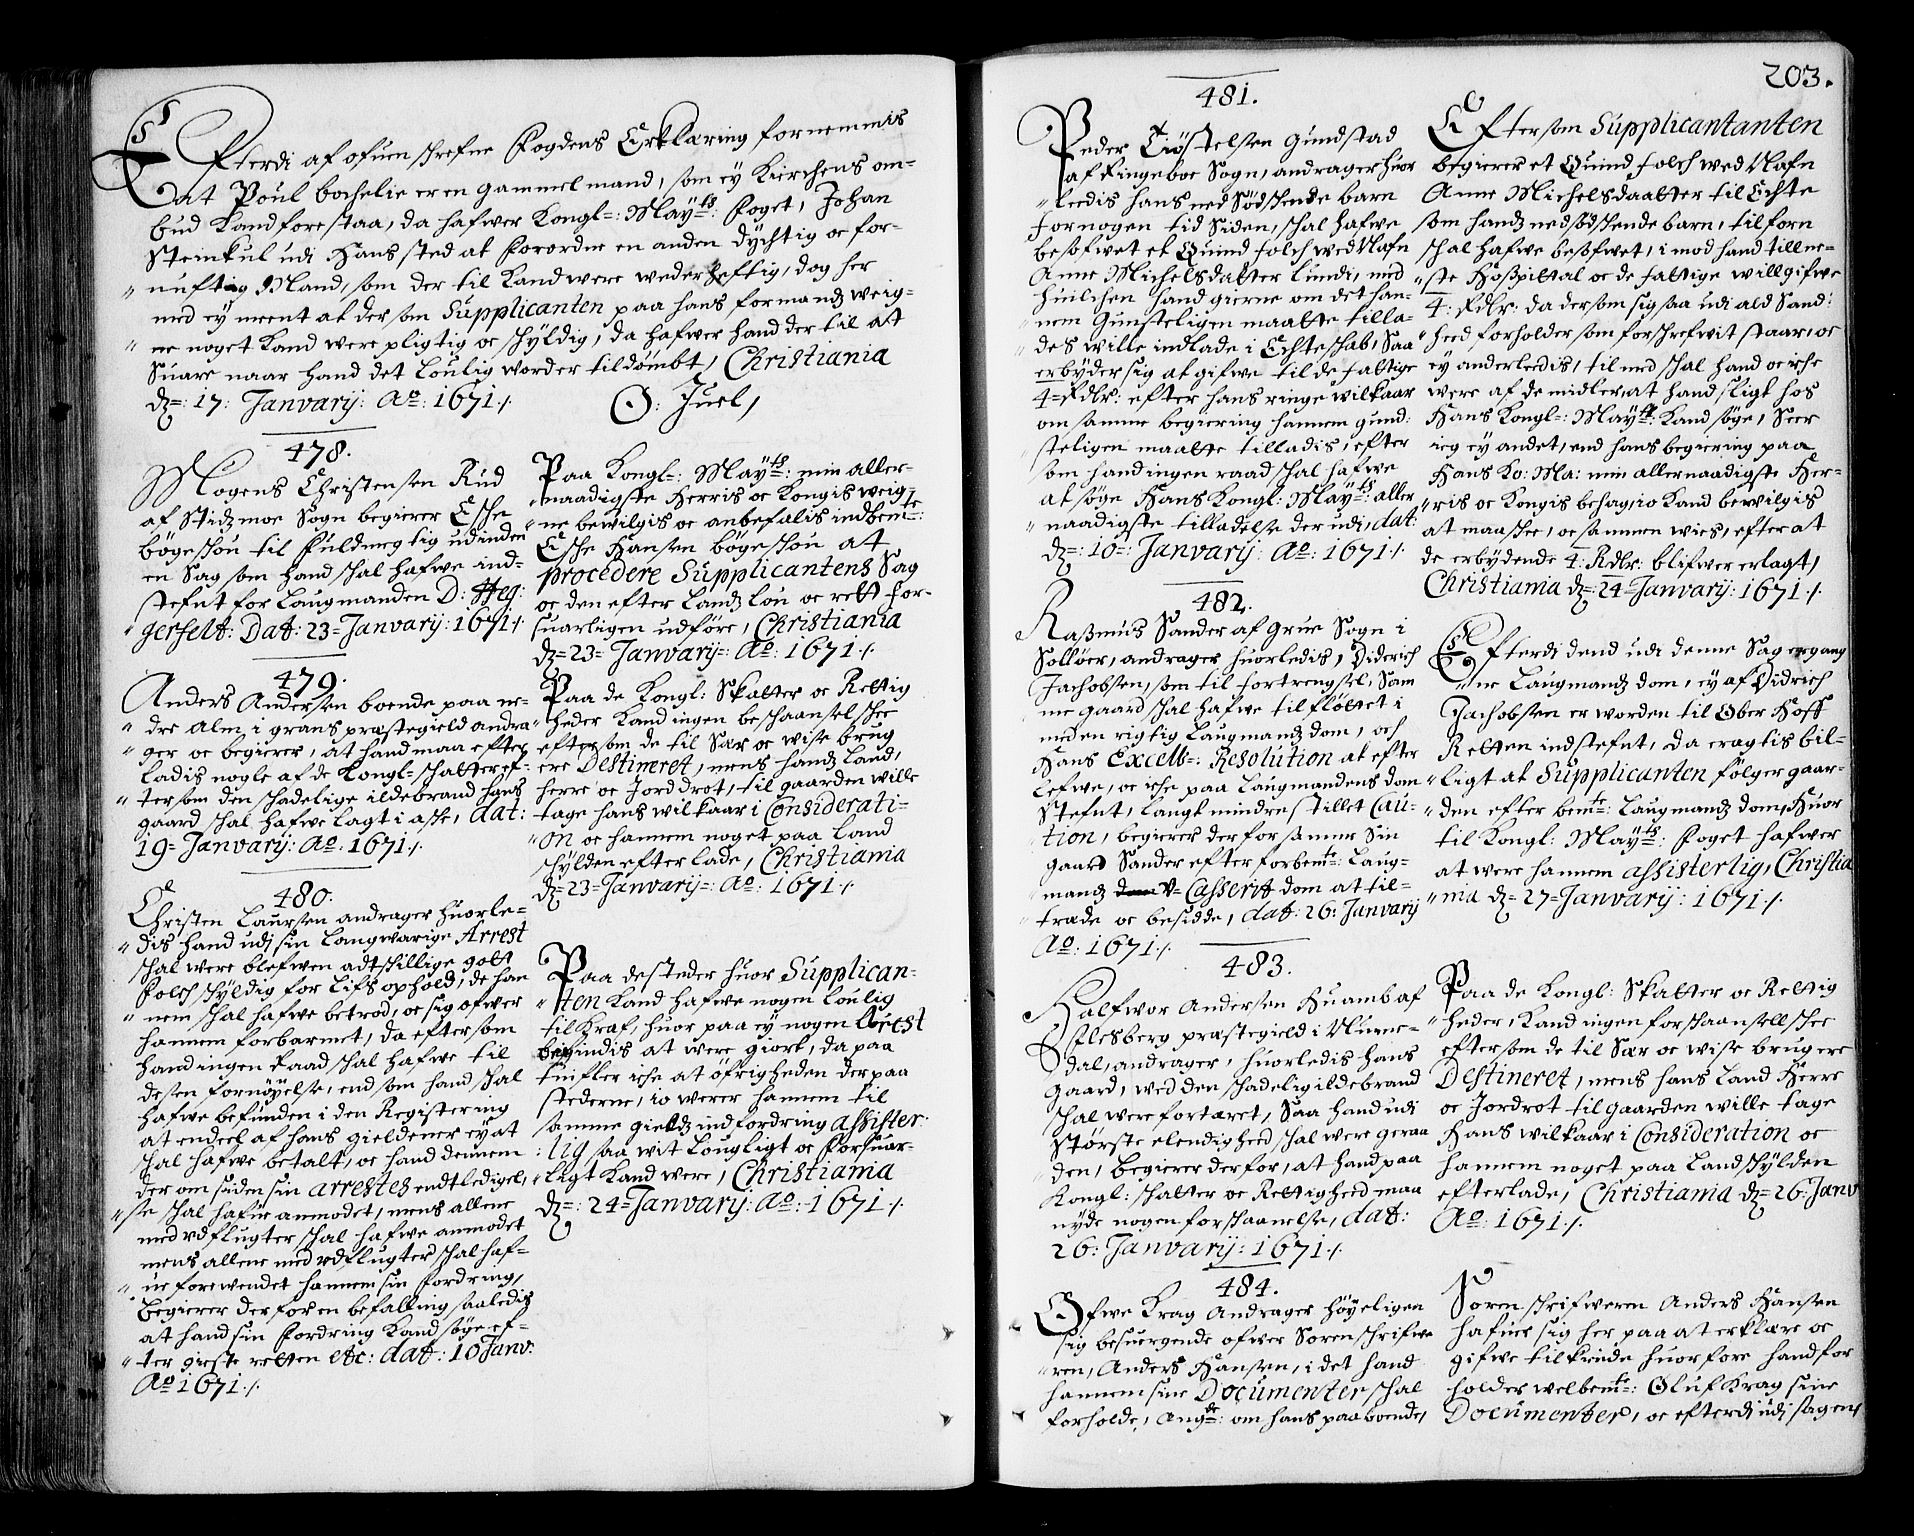 Efterdi af ofuen schrefne Fogdens Erklæring fornemmis
at Poul bochelie er en gammel mand, som ey Kirchens om-
bud Kand forestaa, da hafwer Kongl: Mayts: Foget, Johan
Steinkul udi Hans sted at Forordne en anden dychtig oc for-
nuftig Mand, som der til Kand were wederheftig, dog her
med ey meent at dersom Supplicanten paa hans formandz weig-
ne noget Kand were pligtig oc schyldig, da hafwer hand der til at
Suare naar hand det Loulig worder tildømbt, Christiania
dz: 17: Janvarij: Ao: 1671 ./.
O: Juel,
478.
Mogens Christensen Rud
af Stidzmoe Sogn begierer Esche
bøgeskou til Fuldmegtig udinden
en Sag som hand schal hafwe ind-
stefnt for Laugmanden D: Heg:
gerfelt: Dat: 23= Janvarij: 1671 ./.
Paa Kongl: Mayts: min aller-
naadigste Herris oc Kongis weig-
ne bewilgis oc anbefalis indbemte:
Esche Hansen bøgeskou at
procedere Supplicantens Sag
oc den efter Landz lou oc rett for-
suarligen udføre, Christiania
dz= 23= Janvarij=: Ao: 1671 ./.
479.
Anders Andersen boende paa ne-
dre Alm i grans præstegield andra
ger oc begierer, at hand maa efter
ladis nogle af de Kongl= schatter ef-
tersom den schadelige ildebrand hans
gaard schal hafwe lagt i asse, dat:
19= Janvarij: Ao: 1671 ./.
Paa de Kongl: Skatter oc Rettig
heder Kand ingen beschaanselsche
eftersom de til Sær oc wisse brug
ere Destineret, mens handz Land,
herre oc Jorddrot, til gaarden wille
tage hans wilkaar i Considerati-
on oc hannem noget paa Land
schylden efterlade, Christiania
dz= 23= Janvarij=: Ao: 1671 ./.
480.
Christen Laursen andrager huorle-
dis hand udj sin langwarige Arrest
schal were blefwen adtschillige gott
Folch schyldig for Lifs ophold, de han
nem schal hafwe betrod, oc sig ofwer
hannem forbarmet, da eftersom
hand ingen Raad schal hafwe til
desen fornøyelse, end som hand schal
hafwe befunden i den Registering
at endeel af hans gieldener ey at
schal hafwe betalt, oc hand dennem
der om siden sin arrestes endtledigel,
se schal hafue anmodet, mens allene
med udflugter schal hafwe anmodet
mens allene med udflugter schal haf-
ue forewendet hannem sin Fordring,
begierer derfor en befalling saaledis
at hand sin Fordring Kand søge ef-
ter gieste retten etc: dat: 10 Janv:
Ao 1671 ./.
Paa de steder huor Supplican-
ten Kand hafwe nogen Loulig
til Kraf, huor paa ey nogen Arrest
befindis at were giort, da paa
tuifler iche at øfrigheden der paa
stederne, io werer hannem til
samme gieldz indfordring assister:
lig saa wit Lougligt oc Forsuar-
ligt Kand were, Christiania
dz=: 24= Janvarij: Ao: 1671 ./.
203.
481.
Peder Tiøstelsen Gundstad
af Ringeboe Sogn, andrager huor
leedis hans ned Sødskende barn
for nogen tid Siden, schal hafwe
besofwet et Quind folch wed Nafn
Anne Michelsdatter Lundi, med
huilchen hand gierne om det han-
nem Gunsteligen maatte tilla-
des wille indlade i Echteschab, Saa
erbyder sig at gifwe til de fattige
4= Rdlr: efter hans ringe wilkaar
om samme begiering hannem gund:
steligen maatte tilladis, efter
som hand ingen raad schal hafwe
at søge Hans Kongl: Mayts: aller
naadigste tilladelse der udi, dat:
dz=: 10=: Janvarij: Ao: 1671 ./.
Eftersom Supplicantanten
begierer et Quind folch wed Nafn
Anne Michelsdaatter til Echte
som handz nedsødskende barn, tilforn
schal hafwe besofwet, i mod hand til ne-
ste Hospittal oc de fattige will gifwe
4: Rdlr: da dersom sig saa udi ald Sand:
heed forholder som forschrefwit staar, oc
ey anderleedis, til med schal hand oc iche
were af de midler, at hand sligt hos
Hans Kongl=: Mayts: Kand søge, Seer
ieg ey andet, end hans begiering paa
Hans Ko: Ma: min allernaadigste Her-
ris oc Kongis behag, io Kand bewilgis
at maa skee, oc sammen wies, efter at
de erbydende 4: Rdlr: blifwer erlagt,
Christiania dz=: 24= Janvarij: 1671 ./.
482.
Rasmus Sander af Grue Sogn i
Solløer, andrager huorledis, Diderich
Jachobsen, som til fortrengsel, Sam
me gaard schal hafwe tilfløttet i
med en rigtig Laugmandz dom, och
Hans Excell=: Resolution at efter
Lefwe, oc iche paa Laugmandens dom
Stefnt, langt mindre stillet Cau-
tion, begierer derfor samme Sin
gaard Sander efter forbemte: Laug-
mandz Casserit dom at til-
træde oc besidde, dat: 26: Janvarij
Ao: 1671 ./.
Efterdi dend udi denne Sag ergang
ne Laugmandz dom, ey af Didrich
Jachobsen er worden til Ober Hoff
Retten indstefnt, da eragtis bil-
ligt at Supplicanten følger gaar-
den efter bemte: Laugmandz dom, Huor
til Kongl: Mayts: Foget hafwer
at were hannem assisterlig, Christia
nia dz= 27= Janvarij: 1671 ./.
483.
Halfwor Andersen Huamb af
Flesberg præstegield i Nume-
dal, andrager, huorledis hans
gaard, wed den schadelig ildebrand
schal were fortæret, Saa hand udi
Største elendigheed schal were geraa
den, begierer derfor, at hand paa
Kongl: schatter oc Rettigheed maa
nyde nogen forschaanelse, dat:
26: Janvarij: 1671 ./.
Paa de Kongl: Skatter oc Rettig
heder, Kand ingen forschaanselsche
eftersom de til Sær oc wisse brug ere
Destineret, mens hans Land Herre
oc Jordrot til gaarden wille tage
Hans wilkaar i Consideration oc
hannem noget paa Landschylden
efterlade, Christiania dz= 26: Janv
Ao: 1671 ./.
484.
Ofwe Krag Andrager høyeligen
sig besuergende ofwer Sorenschrifwe
ren, Anders Hansen, i det hand
hannem sine Documenter schal
forholde, angde: om hans paaboende,
Sorenschrifweren Anders Hansen
hafuer sig her paa at erklære oc
gifwe tilkiende huorfore hand for
holder welbemte: Oluf Krag sine
Documenter, oc efterdj udj sagens